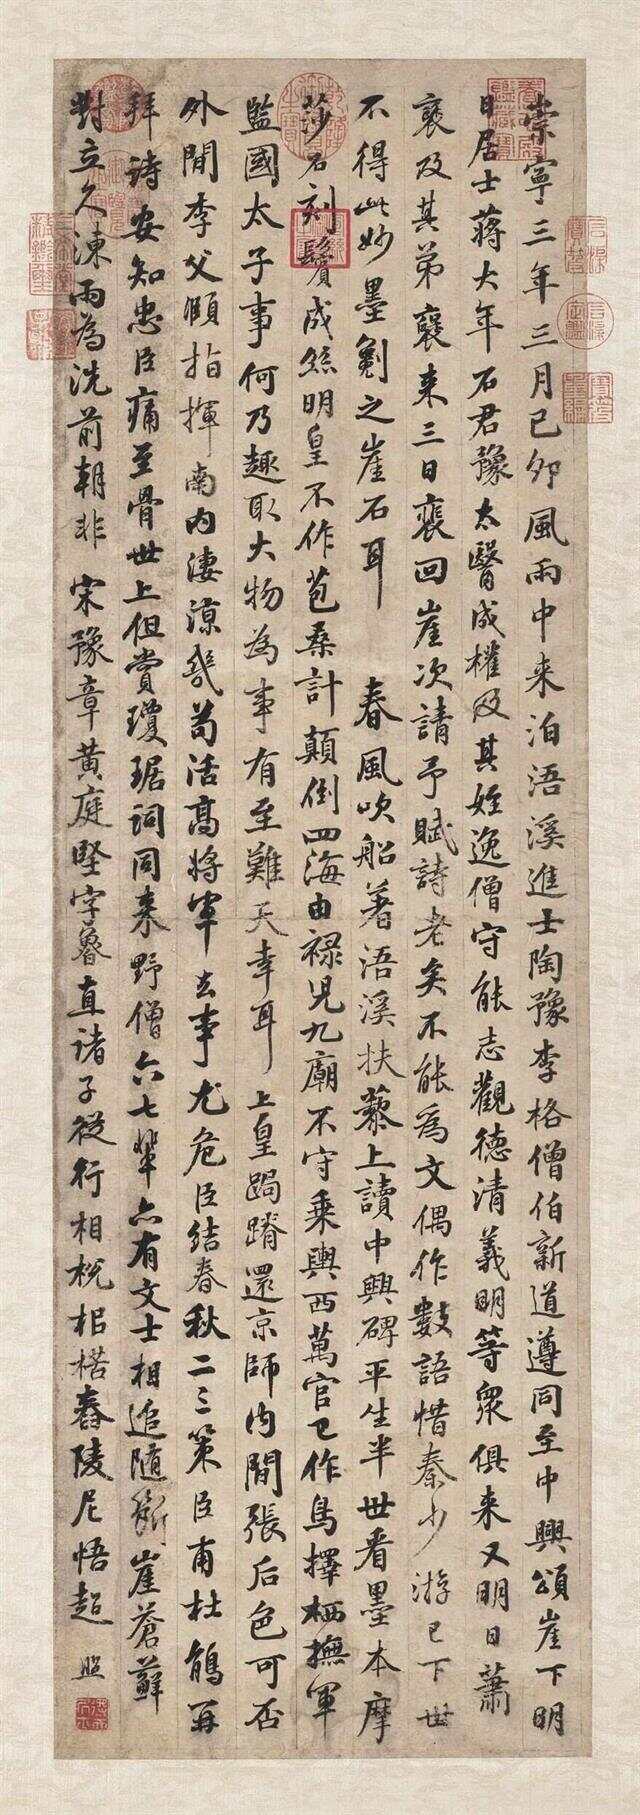 崇寧三年三月己卯風雨中来泊浯溪進士陶豫李格僧伯新道遵同至中興頌崖下明
日居士蔣大年石君豫太醫成權及其姪逸僧守能志觀德清義明等衆俱来又明日蕭
襃及其弟襃来三日襃回崖次請予賦詩老矣不能為文偶作數語惜秦少游已下世
不得此妙墨劖之崖石耳 春風吹船著浯溪扶藜上讀中興碑平生半世看墨本摩
莎石刻鬢成絲明皇不作苞桑計顛倒四海由禄児九廟不守乗輿西萬官已作鳥擇栖撫軍
監國太子事何乃趣取大物為事有至難天幸耳上皇跼蹐還京師内間張后色可否
外間李父頤指揮南内淒涼幾苟活髙將軍去事尤危臣結春秋二三策臣甫杜鵑再
拜詩安知忠臣痛至骨世上但賞瓊琚詞同来野僧六七輩亦有文士相追隨斷崖蒼蘚
對立久涷雨為洗前朝非 宋豫章黄庭堅字魯直諸子從行相梲相楛舂陵尼悟超 照